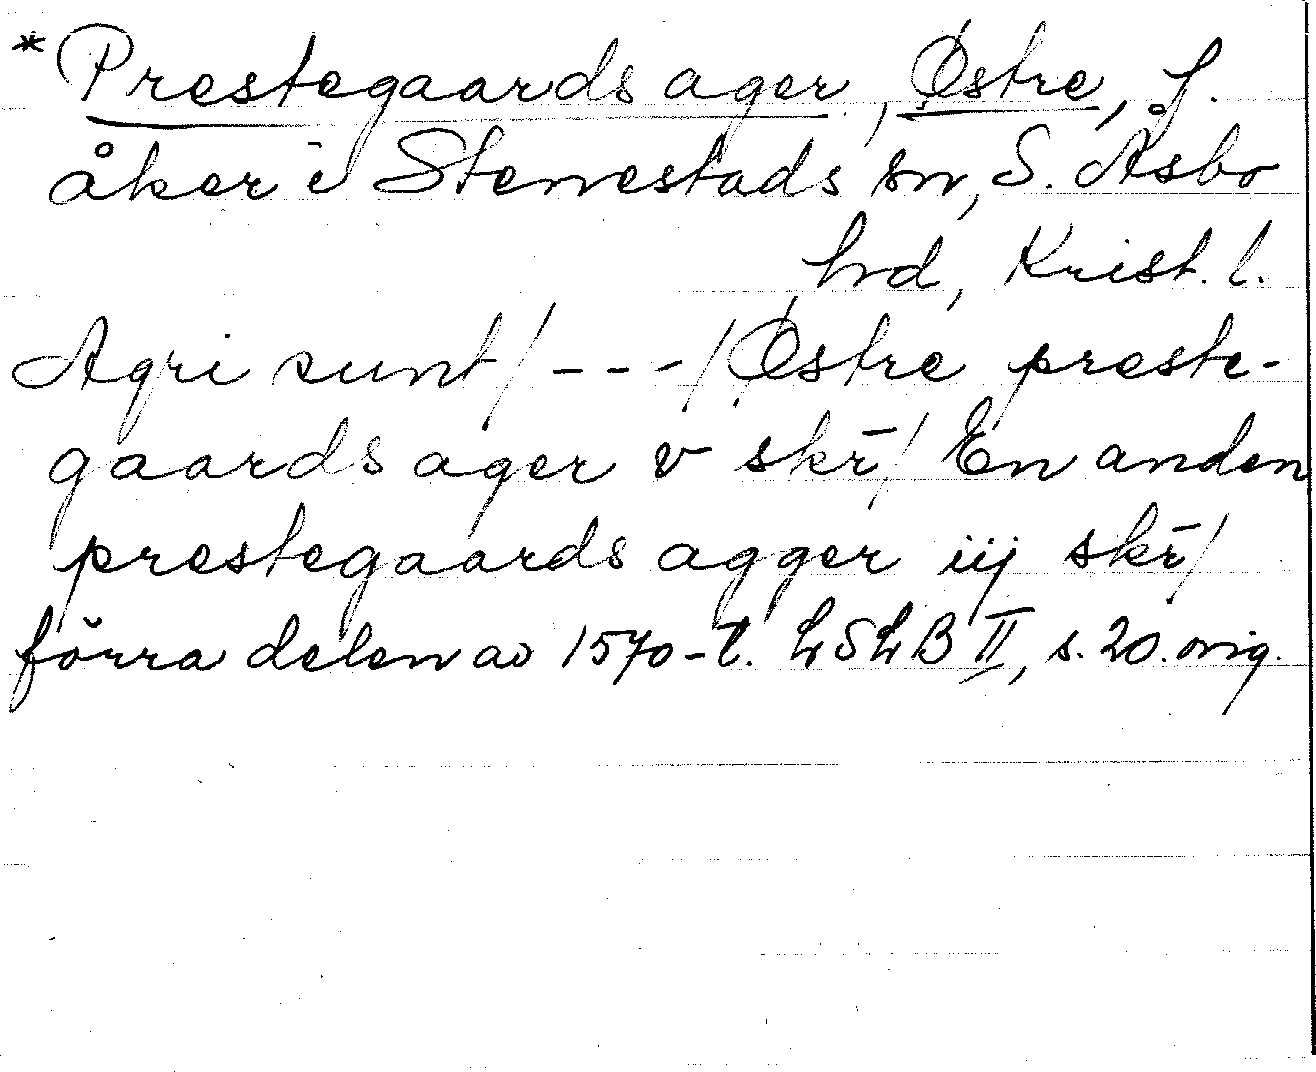 *Prestegaards ager, Østre, f.
åker i Stenestads sn, S. Åsbo
hd, Krist. l.
Agri sunt/---/Østre preste-
gaards ager v skr̄/ En anden
prestegaards agger iij skr̄/
förra delen av 1570-t. LSLB II, s. 20. orig.